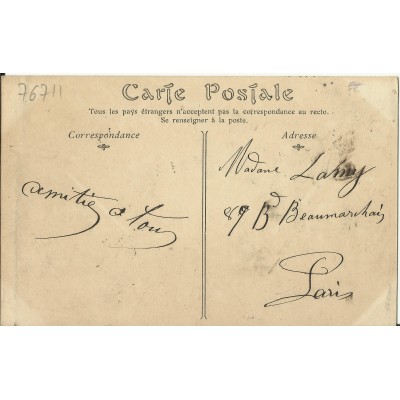 76711
Carte Postale
Tous les pays étrangers n'acceptent pas la correspondance au recto.
Se renseigner à la poste.
Correspondance
Adresse
amitié a tous
Madame Lamy
89 Bd Beaumarchais
Paris